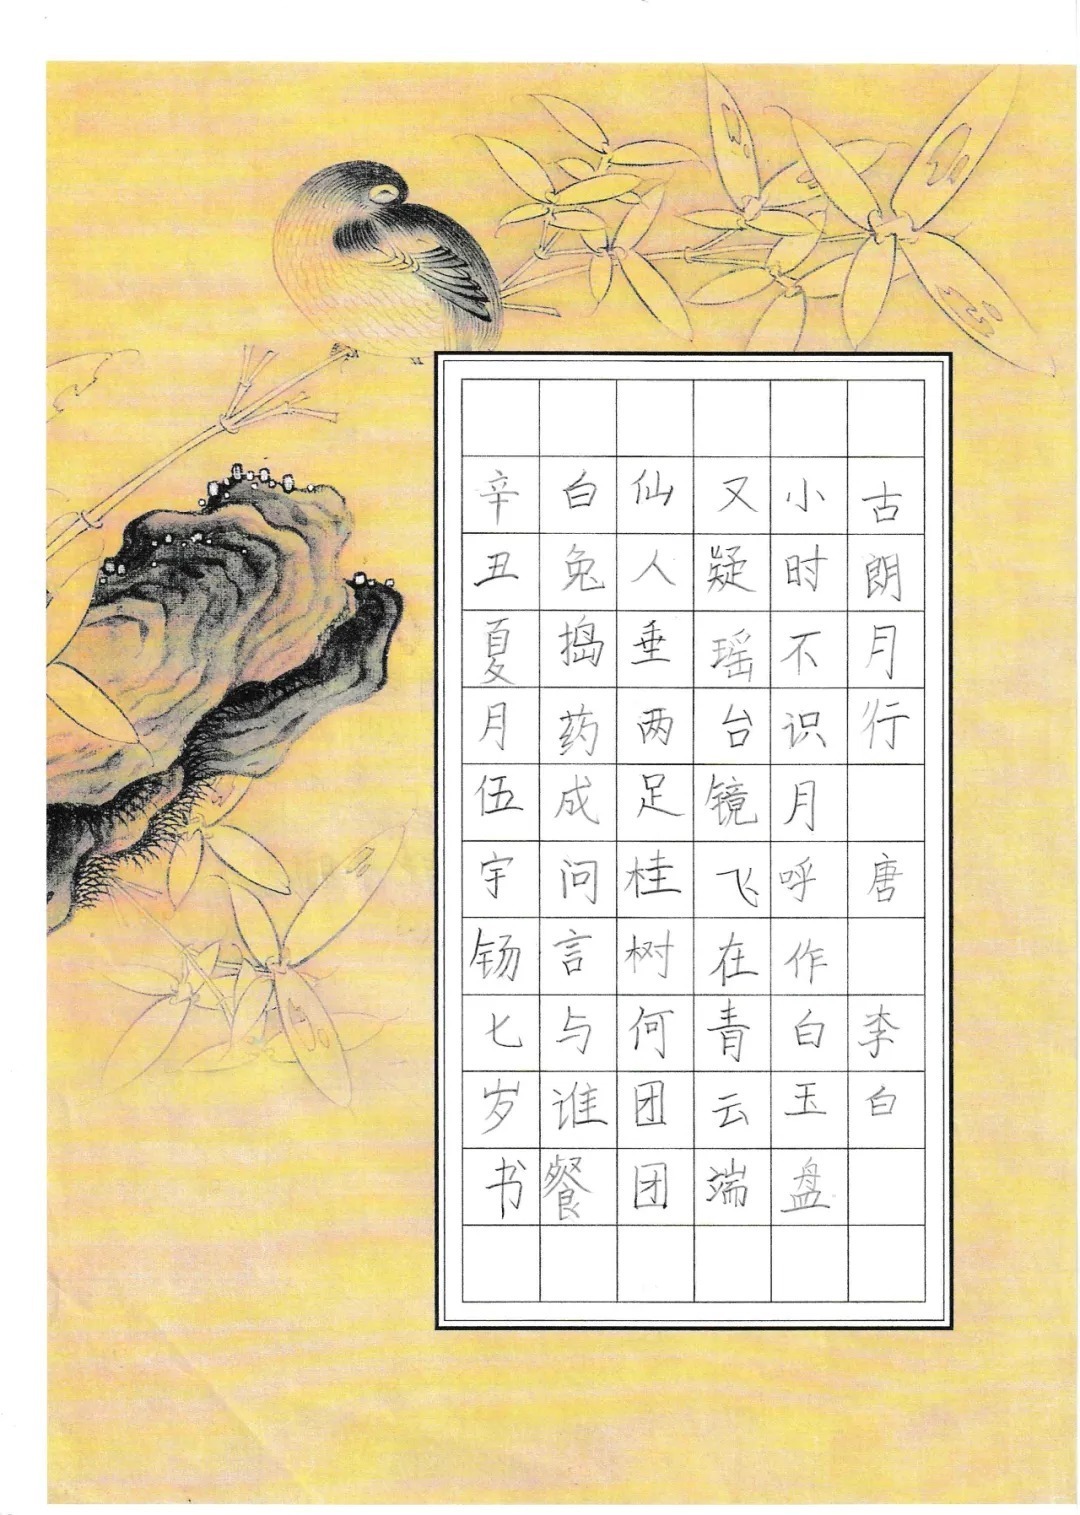 古朗月行 唐 李白
小时不识月呼作白玉盘
又疑瑶台镜飞在青云端
仙人垂两足桂树何团团
白兔捣药成问言与谁餐
辛丑夏月伍宇钖七岁书